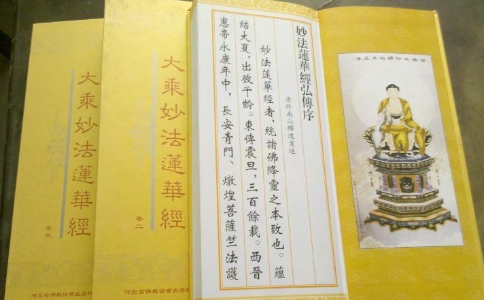 妙法蓮華經弘傳序
唐終南山釋道宣述
妙法蓮華經者，統諸佛降靈之本致也。蘊
結大夏，出彼千齡。東傳震旦，三百餘載。西晉
惠帝永康年中，長安青門、燉煌菩薩竺法護
大乘妙法蓮華經
卷二
大乘妙法蓮華經